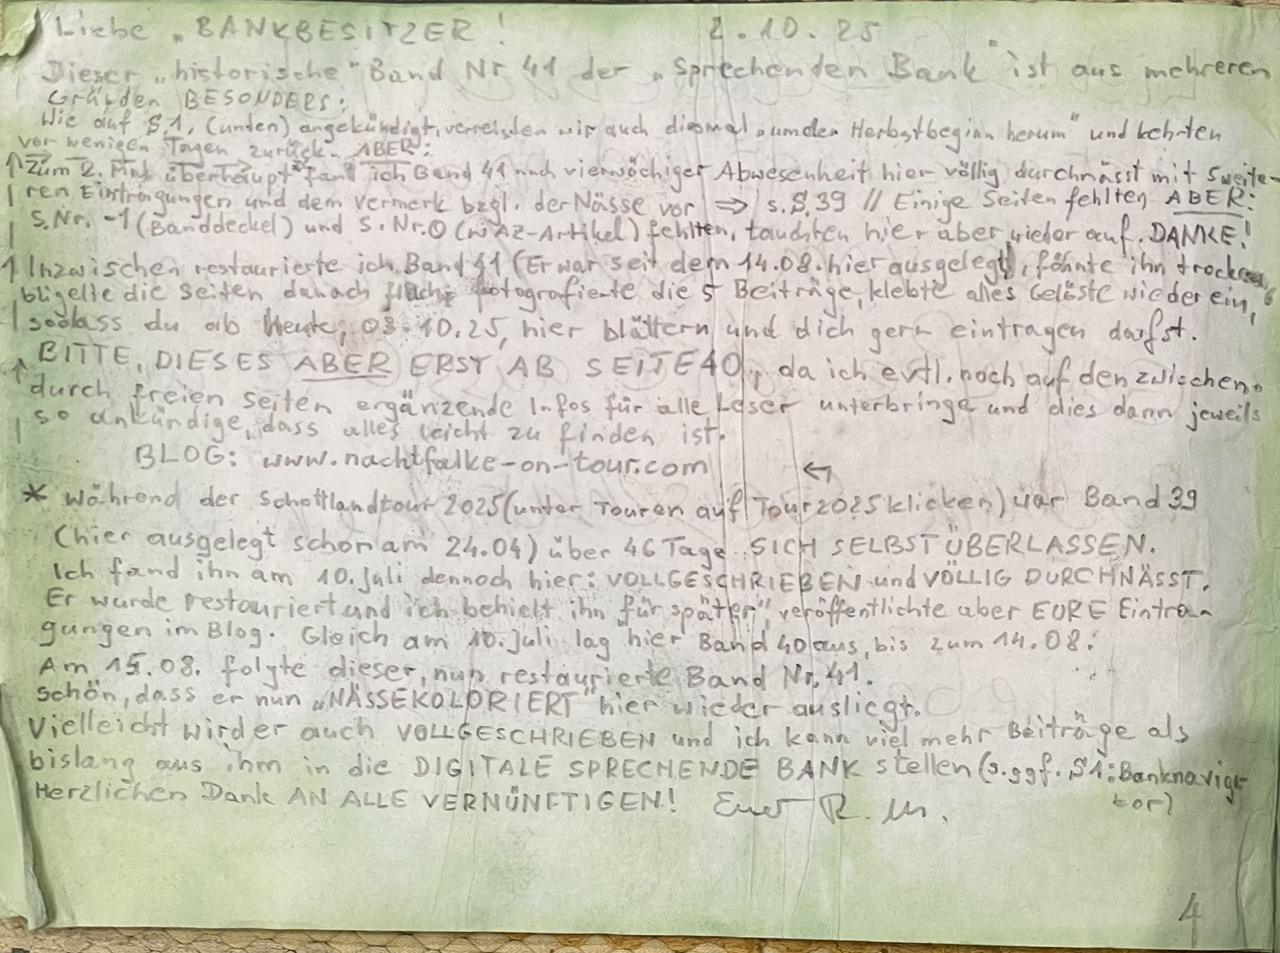 Liebe „BANKBESITZER! 2.10.25
Dieser „historische" Band Nr 41 der „Sprechenden Bank" ist aus mehreren
Gründen BESONDERS:
Wie auf S.1, (unten) angekündigt, verreisten wir auch diesmal „um den Herbstbeginn herum" und kehrten
vor wenigen Tagen zurück. ABER:
↑ Zum 2. Mal überhaupt* fand ich Band 41 nach vierwöchiger Abwesenheit hier völlig durchnässt mit 5 weite-
ren Eintragungen und dem Vermerk bzgl. der Nässe vor ⇒ s.S.39 // Einige Seiten fehlten ABER:
S.Nr. -1 (Banddeckel) und S.Nr.0 (WAZ-Artikel) fehlten, tauchten hier aber wieder auf. DANKE!
↑ Inzwischen restaurierte ich Band 41 (Er war seit dem 14.08. hier ausgelegt), föhnte ihn trocken,
bügelte die Seiten danach flach, fotografierte die 5 Beiträge, klebte alles Gelöste wieder ein,
sodass du ab heute, 03.10.25, hier blättern und dich gern eintragen darfst.
↑ BITTE, DIESES ABER ERST AB SEITE 40, da ich evtl. noch auf den zwischen-
durch freien Seiten ergänzende Infos für alle Leser unterbringe und dies dann jeweils
so ankündige, dass alles leicht zu finden ist.
BLOG: www.nachtfalke-on-tour.com ↰
* Während der Schottlandtour 2025 (unter Touren auf Tour 2025 klicken) war Band 39
(hier ausgelegt schon am 24.04) über 46 Tage SICH SELBST ÜBERLASSEN.
Ich fand ihn am 10. Juli dennoch hier: VOLLGESCHRIEBEN und VÖLLIG DURCHNÄSST.
Er wurde restauriert und ich behielt ihn „für später", veröffentlichte aber EURE Eintra-
gungen im Blog. Gleich am 10. Juli lag hier Band 40 aus, bis zum 14.08.
Am 15.08. folgte dieser, nun restaurierte Band Nr. 41.
Schön, dass er nun „NÄSSEKOLORIERT" hier wieder ausliegt.
Vielleicht wird er auch VOLLGESCHRIEBEN und ich kann viel mehr Beiträge als
bislang aus ihm in die DIGITALE SPRECHENDE BANK stellen (s.ggf. S1: Banknaviga-
tor)
Herzlichen Dank AN ALLE VERNÜNFTIGEN! Euer R. M.
4